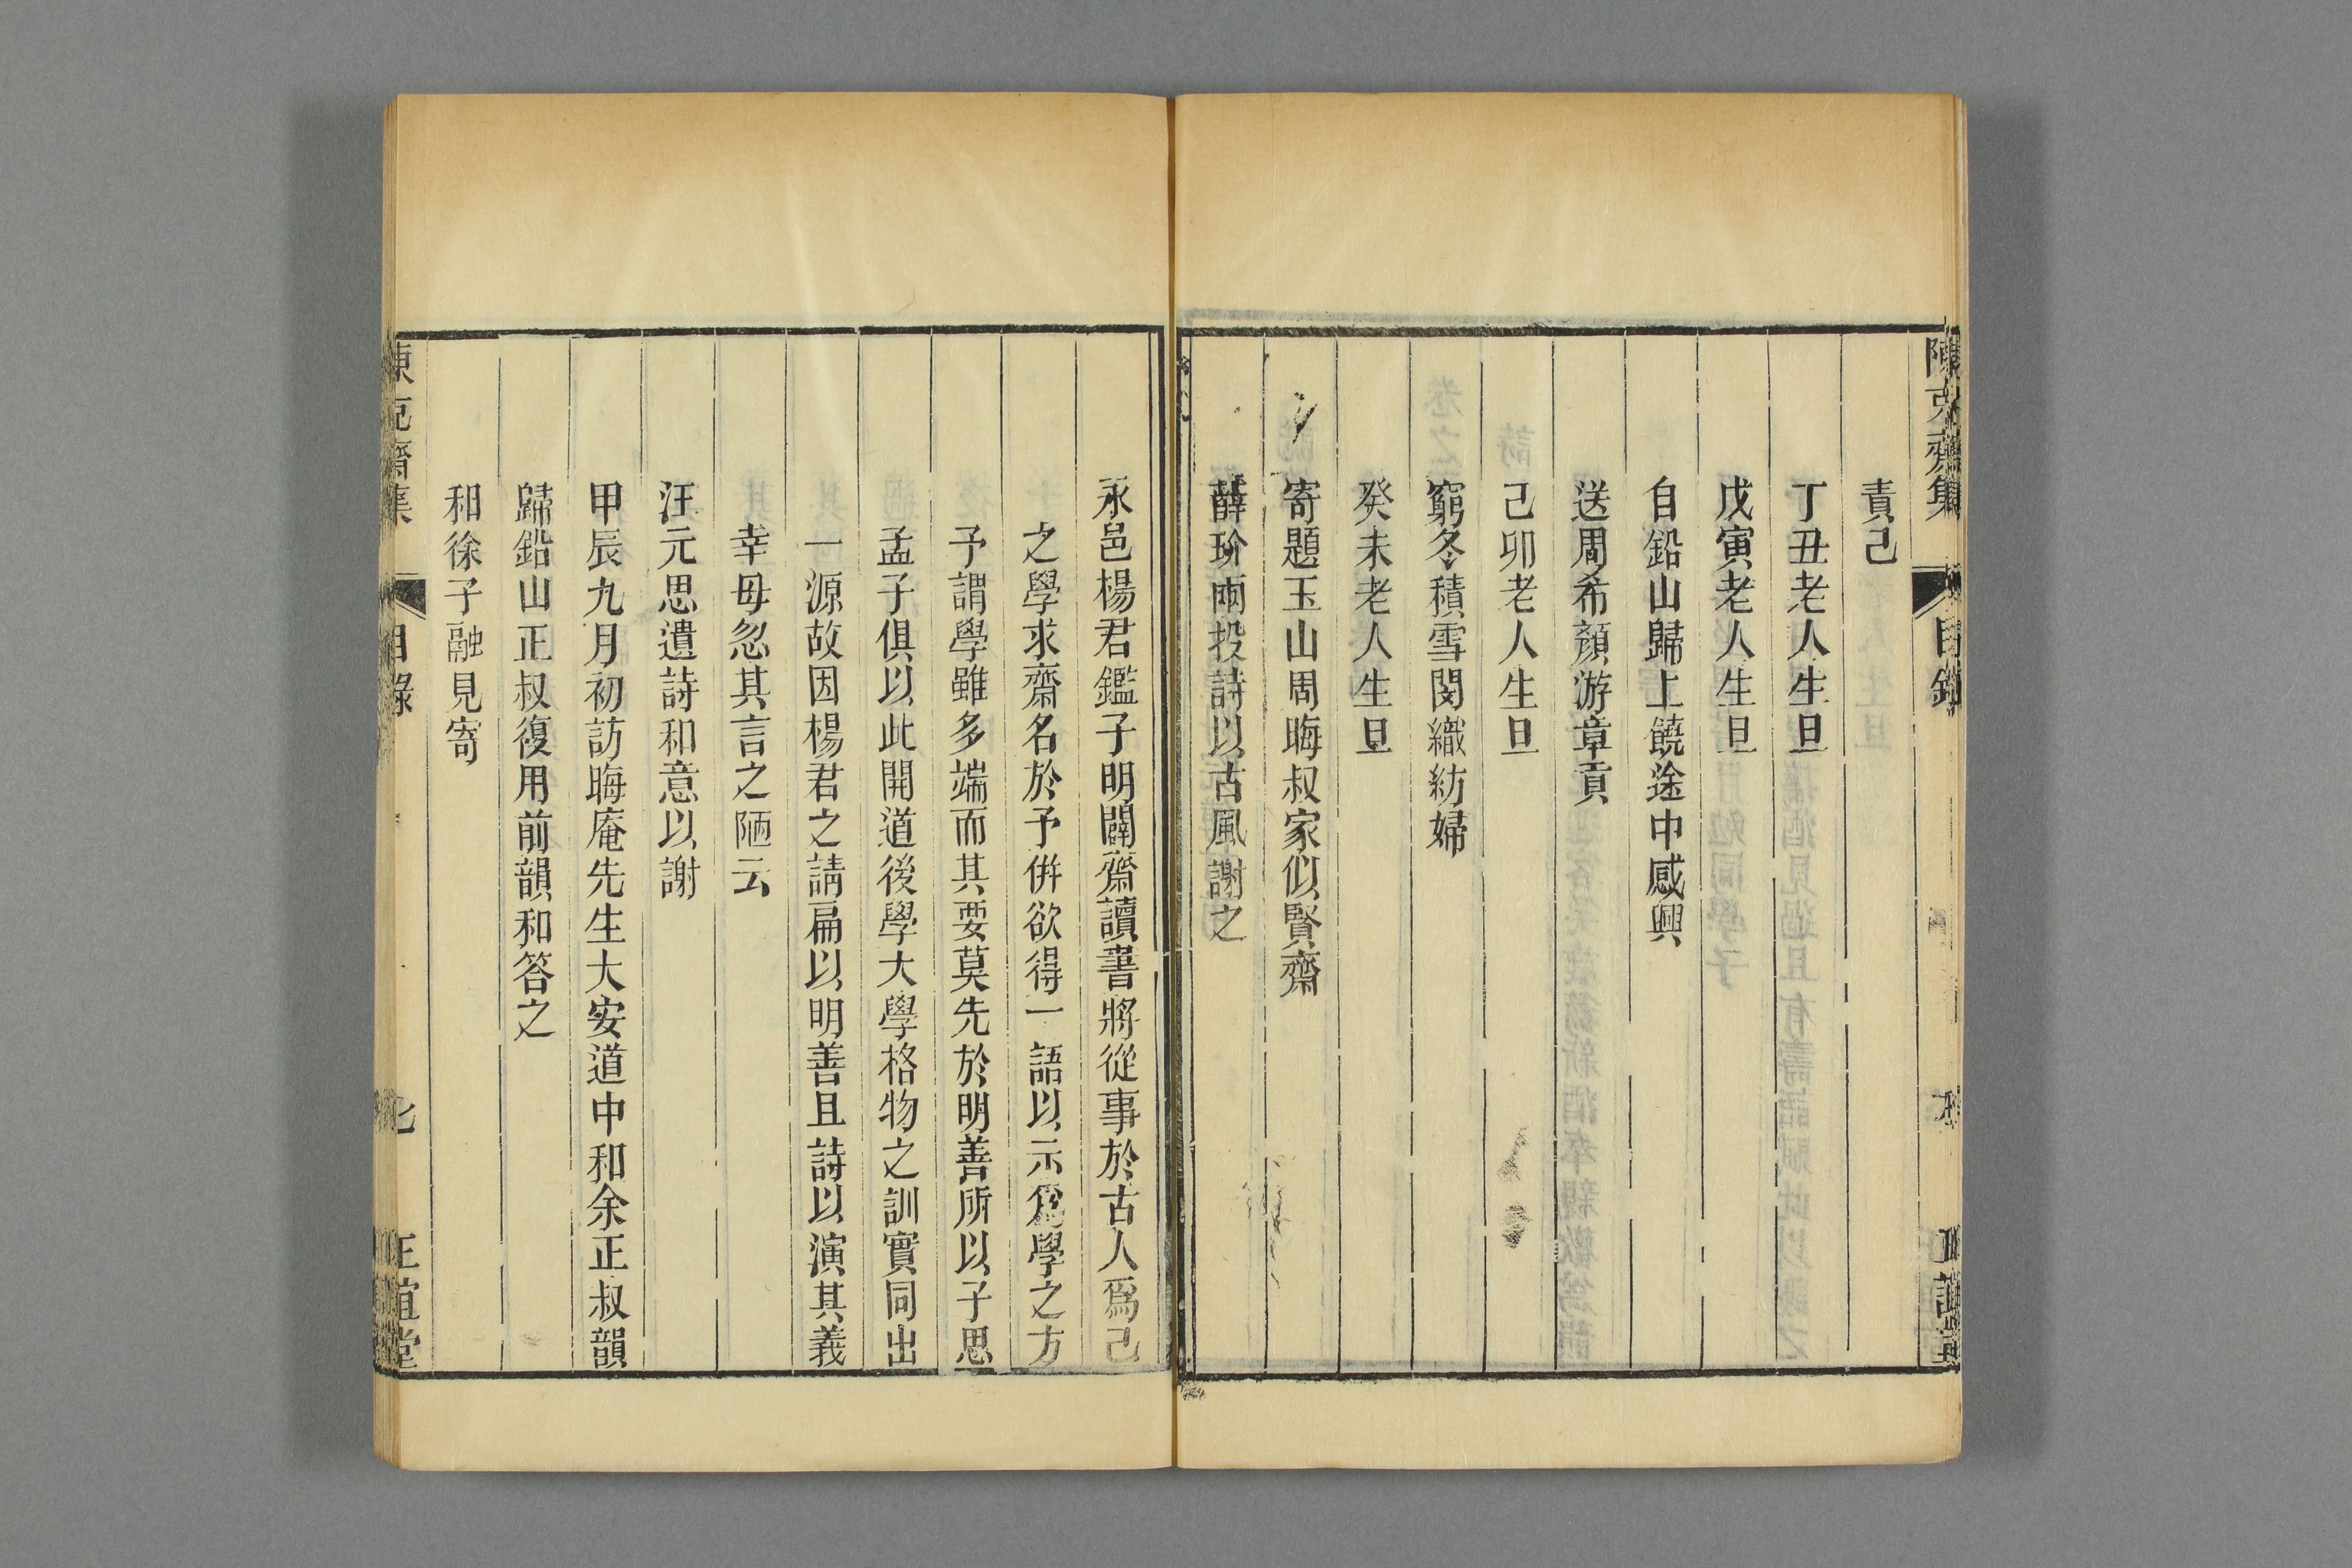 陳克齋集
目錄
正誼堂
責己
丁丑老人生旦
戊寅老人生旦
自鉛山歸上饒途中感興
送周希顏游章貢
己卯老人生旦
窮冬積雪閔織紡婦
癸未老人生旦
寄題玉山周晦叔家似賢齋
薛玠兩投詩以古風謝之
永邑楊君鑑子明闢齋讀書將從事於古人爲己
之學求齋名於予併欲得一語以示爲學之方
予謂學雖多端而其要莫先於明善所以子思
孟子俱以此開道後學大學格物之訓實同出
一源故因楊君之請扁以明善且詩以演其義
幸毋忽其言之陋云
汪元思遺詩和意以謝
甲辰九月初訪晦庵先生大安道中和余正叔韻
歸鉛山正叔復用前韻和答之
和徐子融見寄
陳克齋集
目錄
七
正誼堂